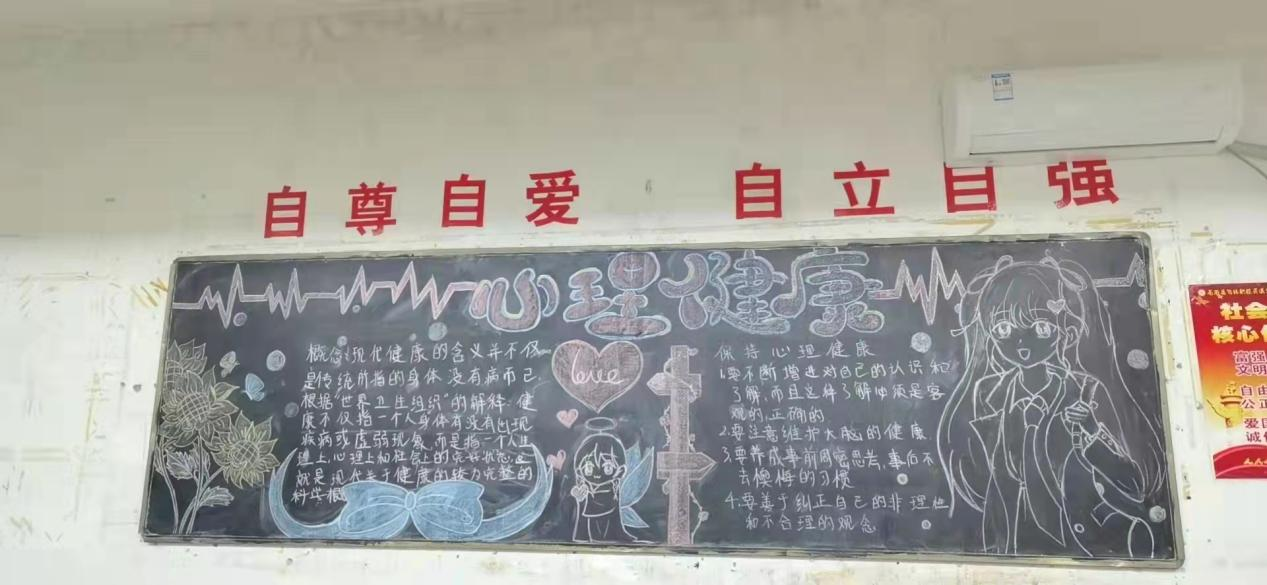 自尊自爱 自立自强
心理健康
概念:现代健康的含义并不仅
是传统所指的身体没有病而已,
根据"世界卫生组织"的解释:健
康不仅指一个人身体有没有出现
疾病或虚弱现象,而是指一个人生
理上、心理上和社会上的完好状态,这
就是现代关于健康的较为完整的
科学概
love
保持心理健康
1.要不断增进对自己的认识和
了解,而且这种了解必须是客
观的、正确的
2.要注意维护大脑的健康
3.要养成事前周密思考,事后不
去懊悔的习惯
4.要善于纠正自己的非理性
和不合理的观念
社会
核心价
富强
文明
自由
公正
爱国
诚信